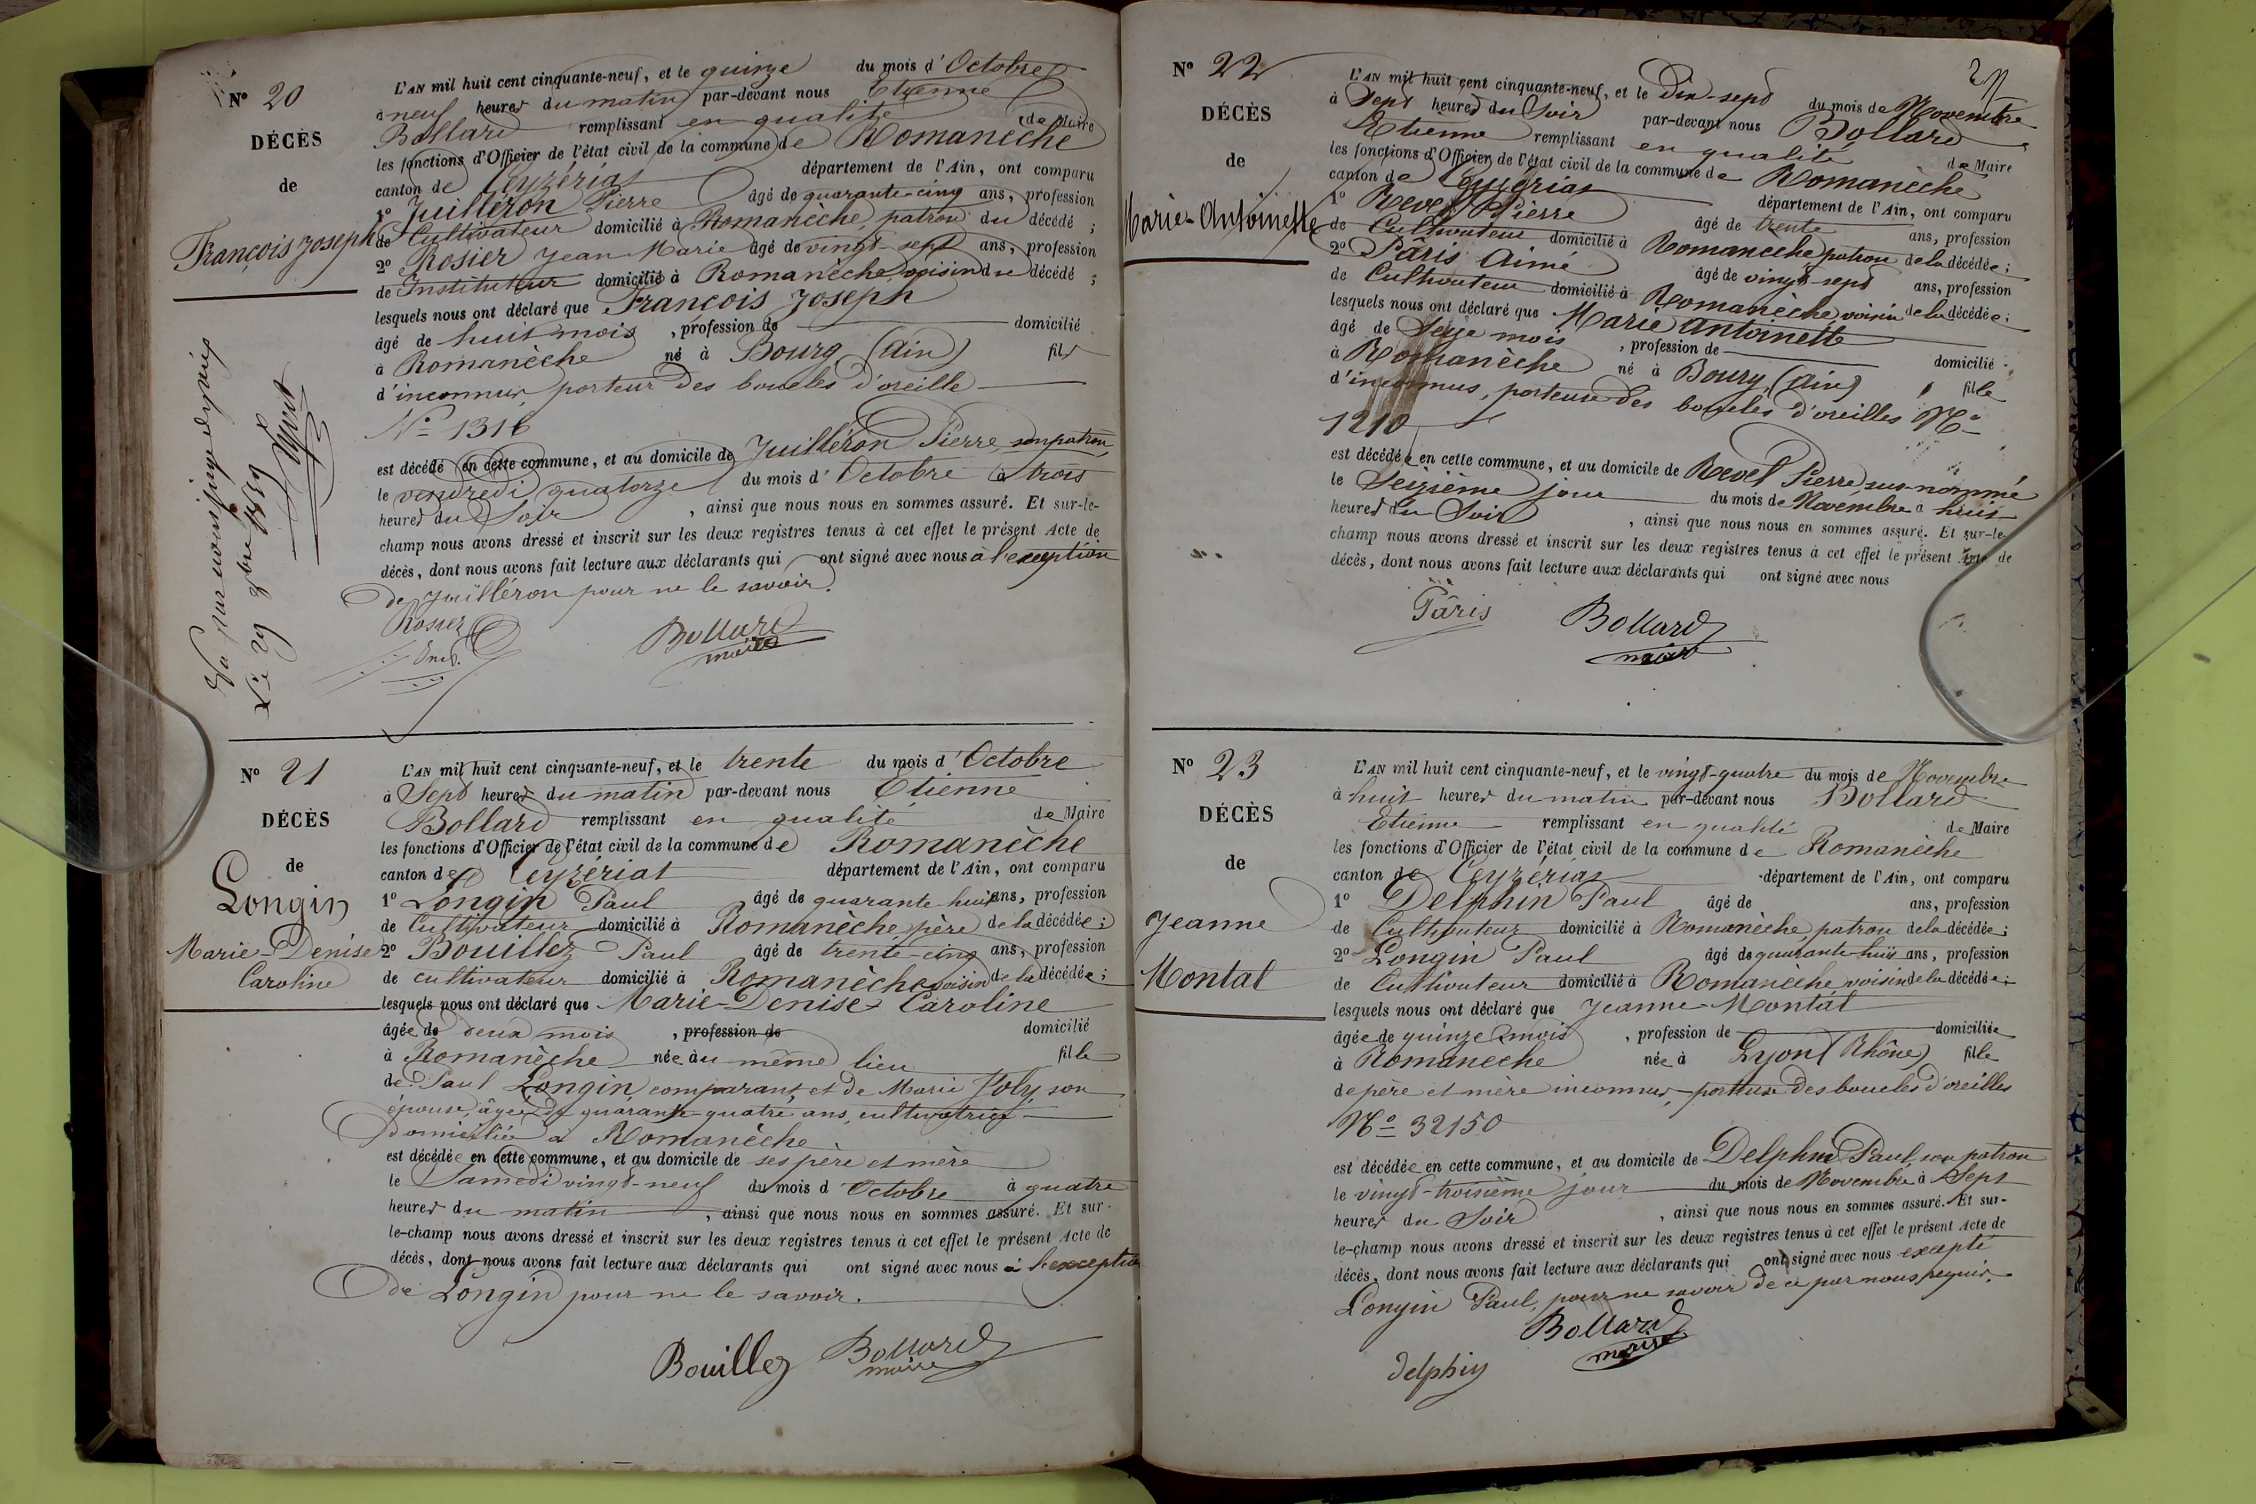 N° 20
DÉCÈS
de
François Joseph
L'AN mil huit cent cinquante-neuf, et le quinze du mois d'Octobre
à neuf heures du matin par-devant nous Etienne
Bollard remplissant en qualité de Maire
les fonctions d'Officier de l'état civil de la commune de Romanèche
canton de Ceyzériat département de l'Ain, ont comparu
1° Juilléron Pierre âgé de quarante-cinq ans, profession
de Cultivateur domicilié à Romanèche, patron du décédé ;
2° Rosier Jean Marie âgé de vingt-sept ans, profession
de Instituteur domicilié à Romanèche voisin du décédé ;
lesquels nous ont déclaré que François Joseph
âgé de huit mois, profession de domicilié
à Romanèche né à Bourg (Ain) fils
d'inconnus, porteur des boucles d'oreille
N° 1316
est décédé en cette commune, et au domicile de Juilléron Pierre, son patron,
le vendredi quatorze du mois d'Octobre à trois
heures du Soir, ainsi que nous nous en sommes assuré. Et sur-le-
champ nous avons dressé et inscrit sur les deux registres tenus à cet effet le présent Acte de
décès, dont nous avons fait lecture aux déclarants qui ont signé avec nous à l'exception
de Juilléron pour ne le savoir.
Rosier Bollard
maire
Vu par nous juge de paix
Le 29 9bre 1859
N° 21
DÉCÈS
de
Longin
Marie-Denise
Caroline
L'AN mil huit cent cinquante-neuf, et le trente du mois d'Octobre
à Sept heures du matin par-devant nous Etienne
Bollard remplissant en qualité de Maire
les fonctions d'Officier de l'état civil de la commune de Romanèche
canton de Ceyzériat département de l'Ain, ont comparu
1° Longin Paul âgé de quarante-huit ans, profession
de Cultivateur domicilié à Romanèche, père de la décédée ;
2° Bouillez Paul âgé de trente-cinq ans, profession
de cultivateur domicilié à Romanèche voisin de la décédée ;
lesquels nous ont déclaré que Marie-Denise Caroline
âgée de deux mois, profession de domicilié
à Romanèche née au même lieu fille
de Paul Longin, comparant, et de Marie Joly, son
épouse, âgée de quarante-quatre ans, cultivatrice
domiciliée à Romanèche
est décédée en cette commune, et au domicile de ses père et mère
le Samedi vingt-neuf du mois d'Octobre à quatre
heures du matin, ainsi que nous nous en sommes assuré. Et sur-
le-champ nous avons dressé et inscrit sur les deux registres tenus à cet effet le présent Acte de
décès, dont nous avons fait lecture aux déclarants qui ont signé avec nous à l'exception
de Longin pour ne le savoir.
Bouillez Bollard
maire
N° 22
DÉCÈS
de
Marie-Antoinette
L'AN mil huit cent cinquante-neuf, et le Dix-sept du mois de Novembre
à Sept heures du Soir par-devant nous Bollard
Etienne remplissant en qualité de Maire
les fonctions d'Officier de l'état civil de la commune de Romanèche
canton de Ceyzériat département de l'Ain, ont comparu
1° Revel Pierre âgé de trente ans, profession
de Cultivateur domicilié à Romanèche patron de la décédée ;
2° Pâris Aimé âgé de vingt-sept ans, profession
de Cultivateur domicilié à Romanèche voisin de la décédée ;
lesquels nous ont déclaré que Marie Antoinette
âgé de Seize mois, profession de domicilié
à Romanèche né à Bourg, (Ain) fille
d'inconnus, porteuse des boucles d'oreilles N°
1210
est décédée en cette commune, et au domicile de Revel Pierre sus-nommé
le Seizième jour du mois de Novembre à huit
heures du Soir, ainsi que nous nous en sommes assuré. Et sur-le-
champ nous avons dressé et inscrit sur les deux registres tenus à cet effet le présent Acte de
décès, dont nous avons fait lecture aux déclarants qui ont signé avec nous
Pâris Bollard
maire
N° 23
DÉCÈS
de
Jeanne
Montal
L'AN mil huit cent cinquante-neuf, et le vingt-quatre du mois de Novembre
à huit heures du matin par-devant nous Bollard
Etienne remplissant en qualité de Maire
les fonctions d'Officier de l'état civil de la commune de Romanèche
canton de Ceyzériat département de l'Ain, ont comparu
1° Delphin Paul âgé de ans, profession
de Cultivateur domicilié à Romanèche, patron de la décédée ;
2° Longin Paul âgé de quarante-huit ans, profession
de Cultivateur domicilié à Romanèche voisin de la décédée ;
lesquels nous ont déclaré que Jeanne Montal
âgée de quinze mois, profession de domiciliée
à Romanèche née à Lyon (Rhône) fille
de père et mère inconnus, porteuse des boucles d'oreilles
N° 32150
est décédée en cette commune, et au domicile de Delphin Paul, son patron
le vingt-troisième jour du mois de Novembre à Sept
heures du Soir, ainsi que nous nous en sommes assuré. Et sur-
le-champ nous avons dressé et inscrit sur les deux registres tenus à cet effet le présent Acte de
décès, dont nous avons fait lecture aux déclarants qui ont signé avec nous excepté
Longin Paul, pour ne savoir de ce par nous requis.
Bollard
maire
Delphin